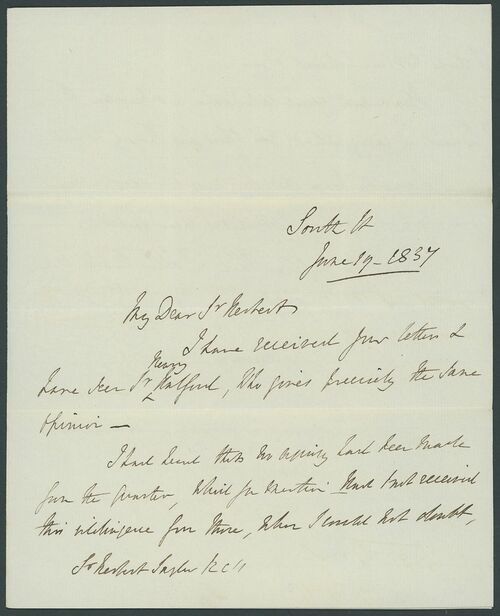 South St
June 19 - 1837
My Dear Sr Herbert
I have received your letters &
Henry
have seen Sr Halford, who gives precisely the same
opinion —
I had heard that no inquiry had been made
from the quarter, which you mention. Had I not received
this intelligence from those, whom I could not doubt,
Sr Herbert Taylor KCH